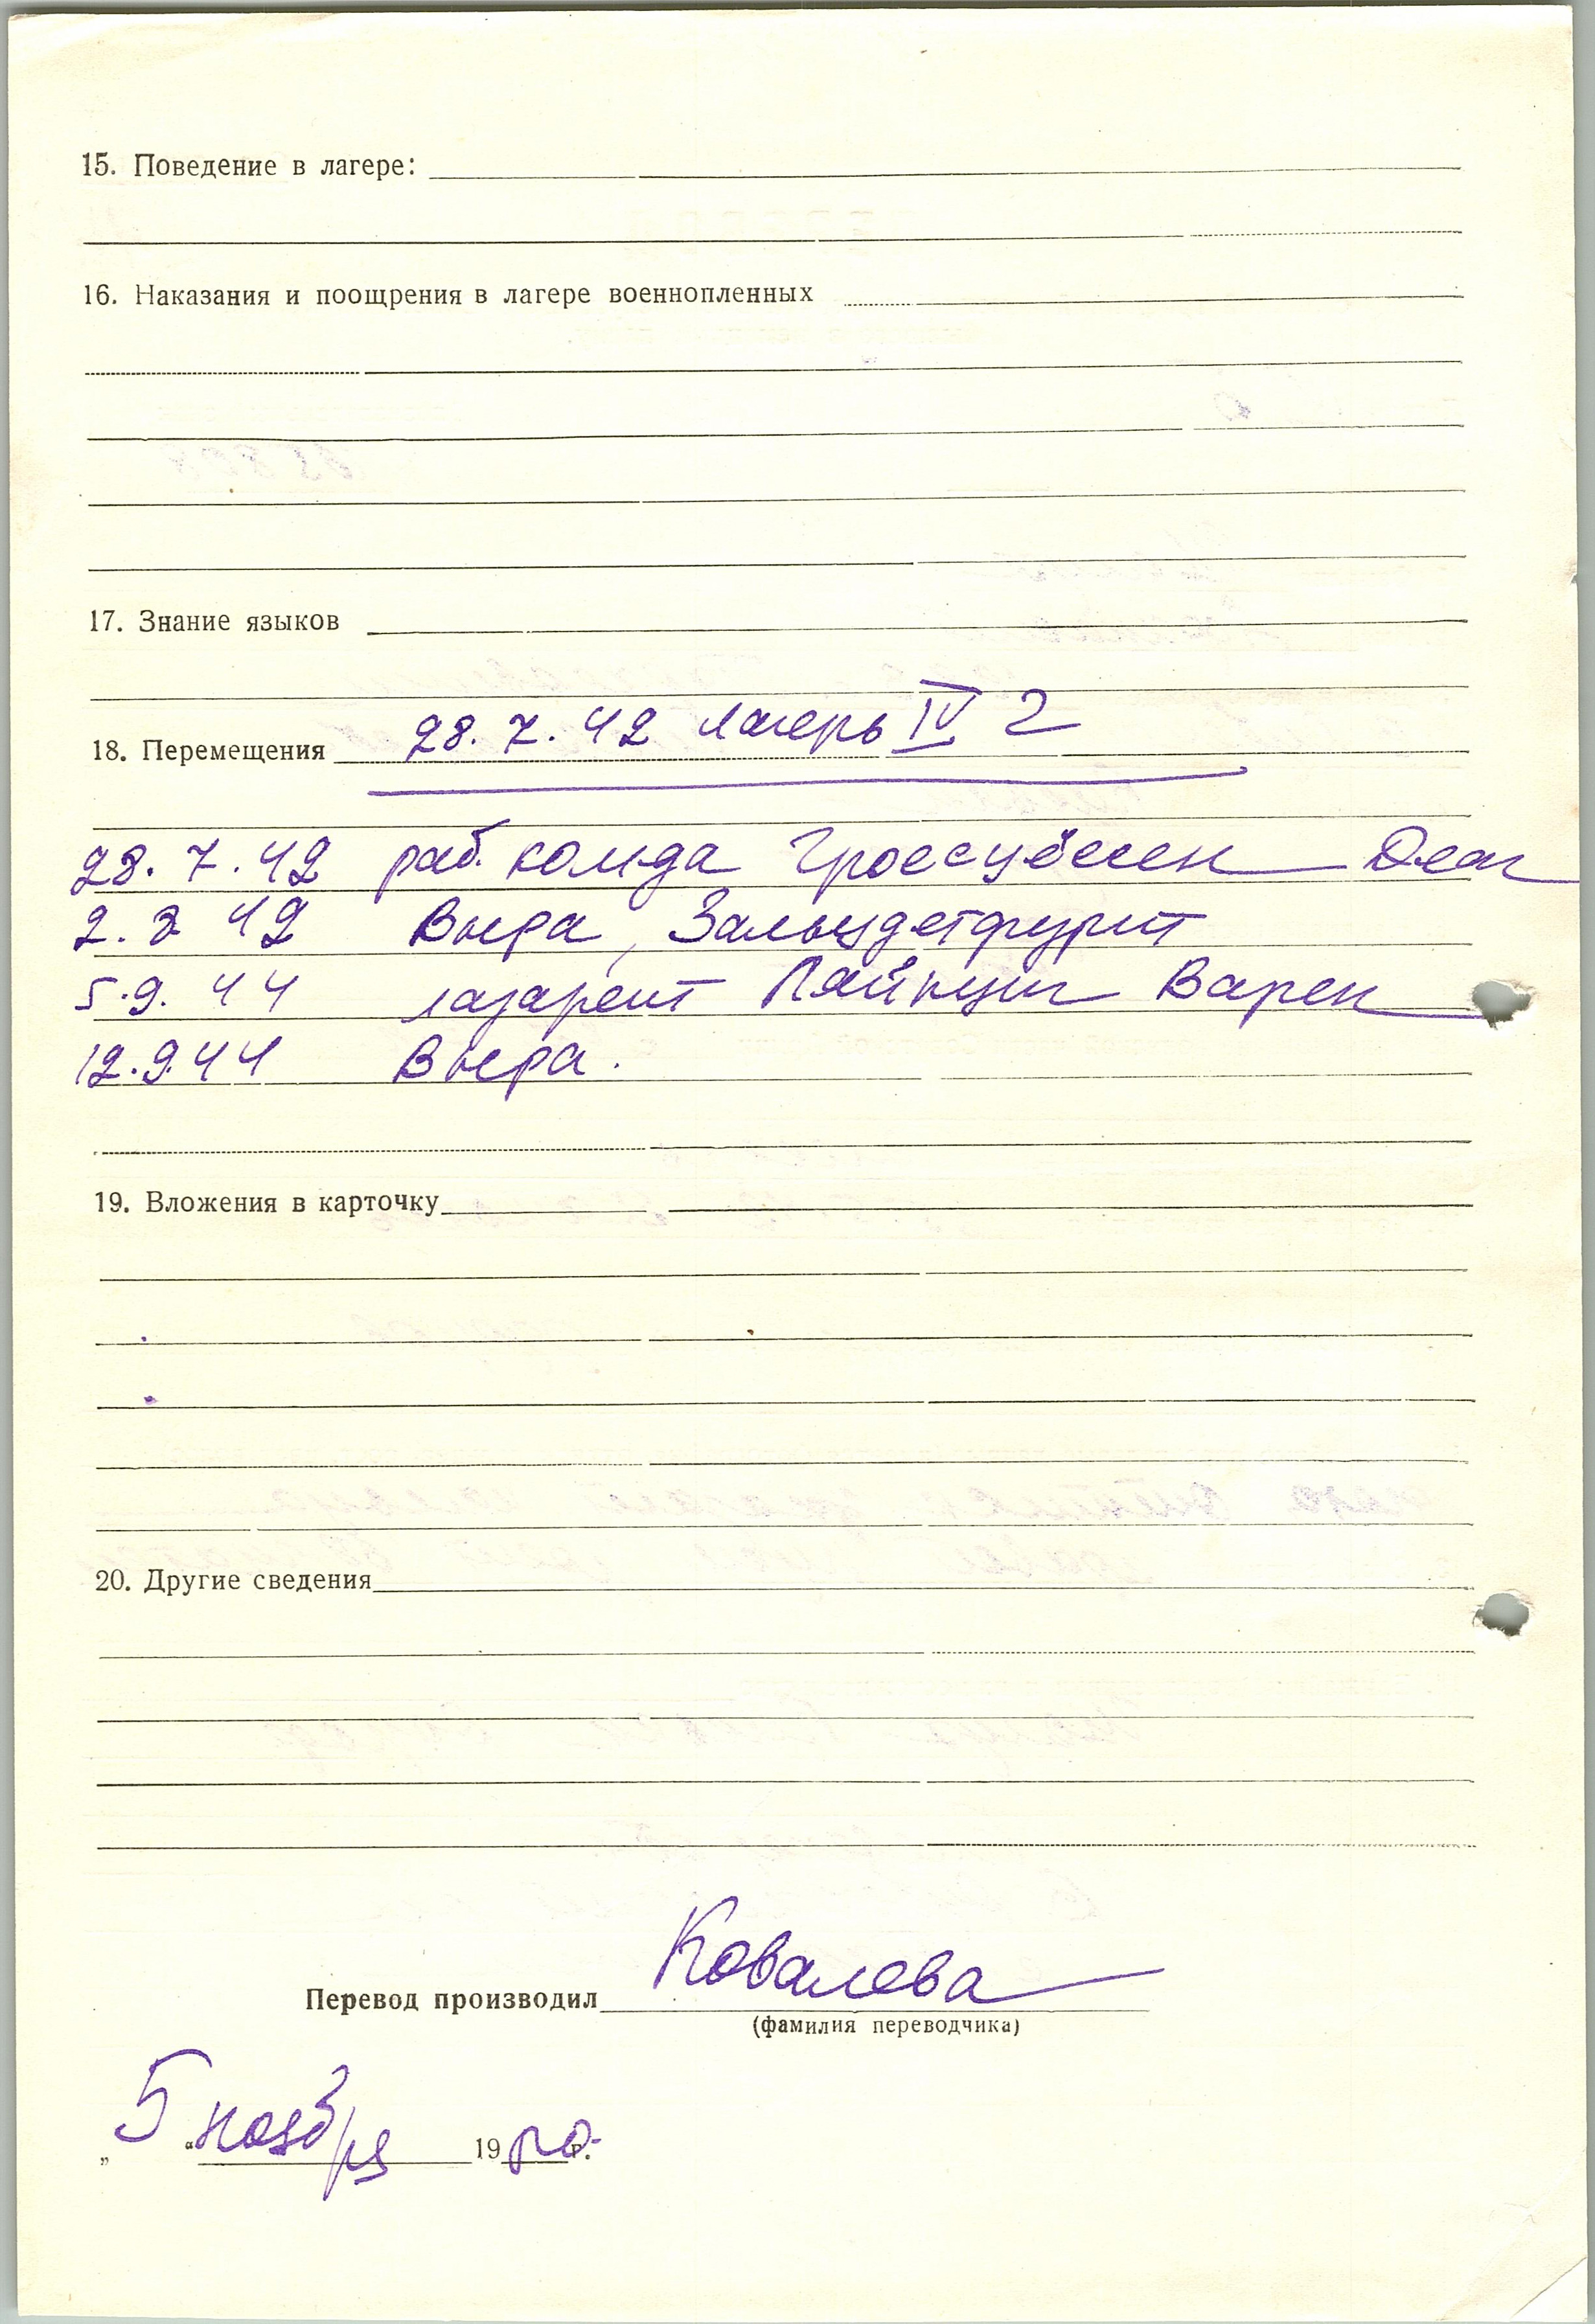 15. Поведение в лагере:
16. Наказания и поощрения в лагере военнопленных
17. Знание языков
18. Перемещения 28.7.42 лагерь IV Г
28.7.42 раб. комда
2. 8 42 Внера, Зальцдетфурт
5.9.44 лазарет Лейпциг Варен
12.9.44 Внера.
19. Вложения в карточку
20. Другие сведения
Перевод производил Ковалева
(фамилия переводчика)
„5“ ноября 19 г.